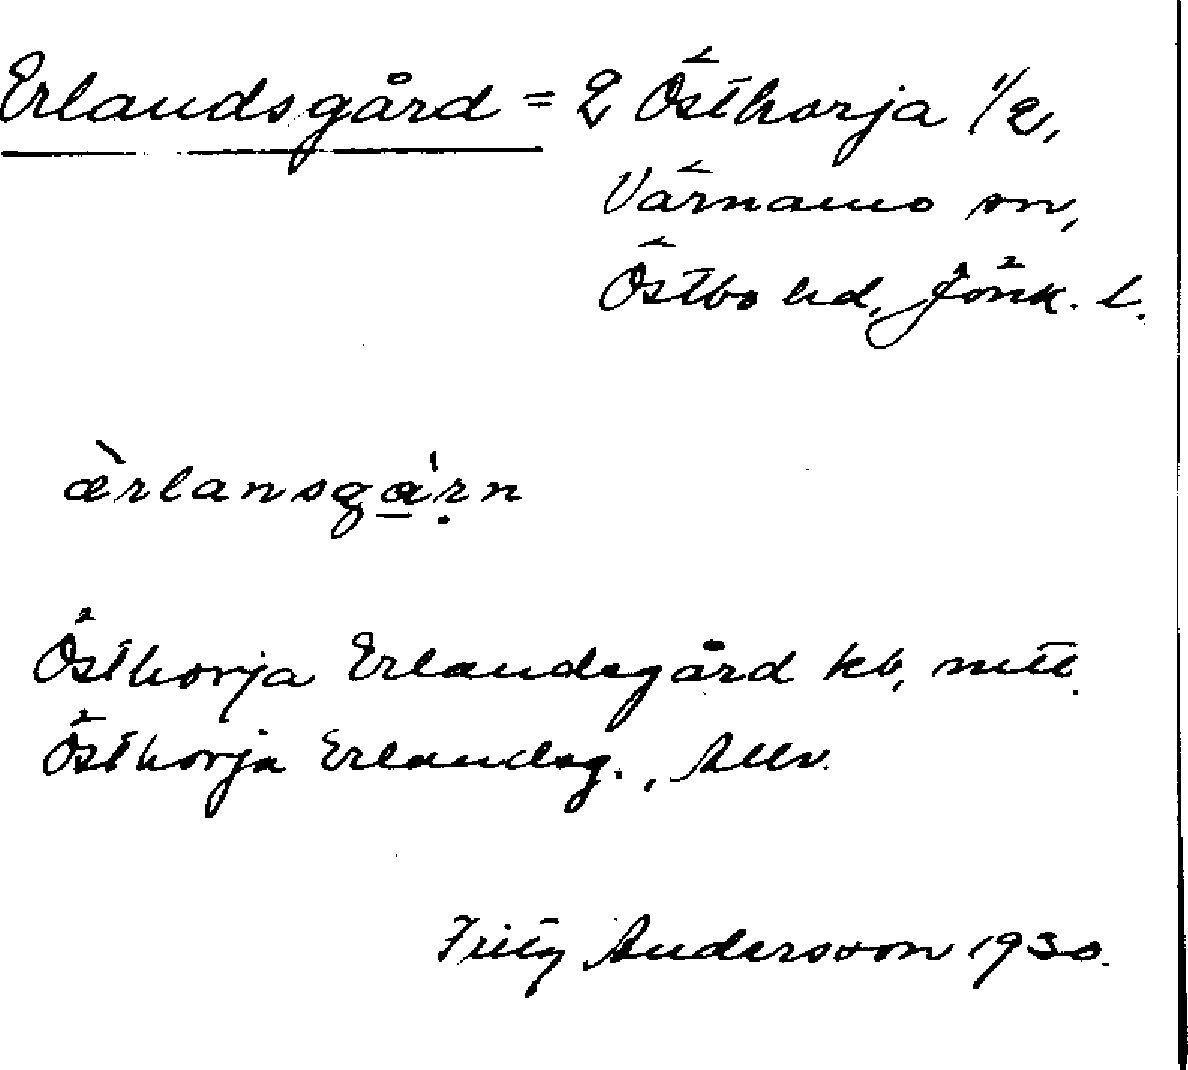 Erlandsgård = 2 Östhorja 1/2,
Värnamo sn,
Östbo hd, Jönk. l.
æ̀rlansga̱'ṛn
Östhorja Erlandsgård kb, mtl.
Östhorja Erlandsg., Allv.
Fritz Andersson 1930.